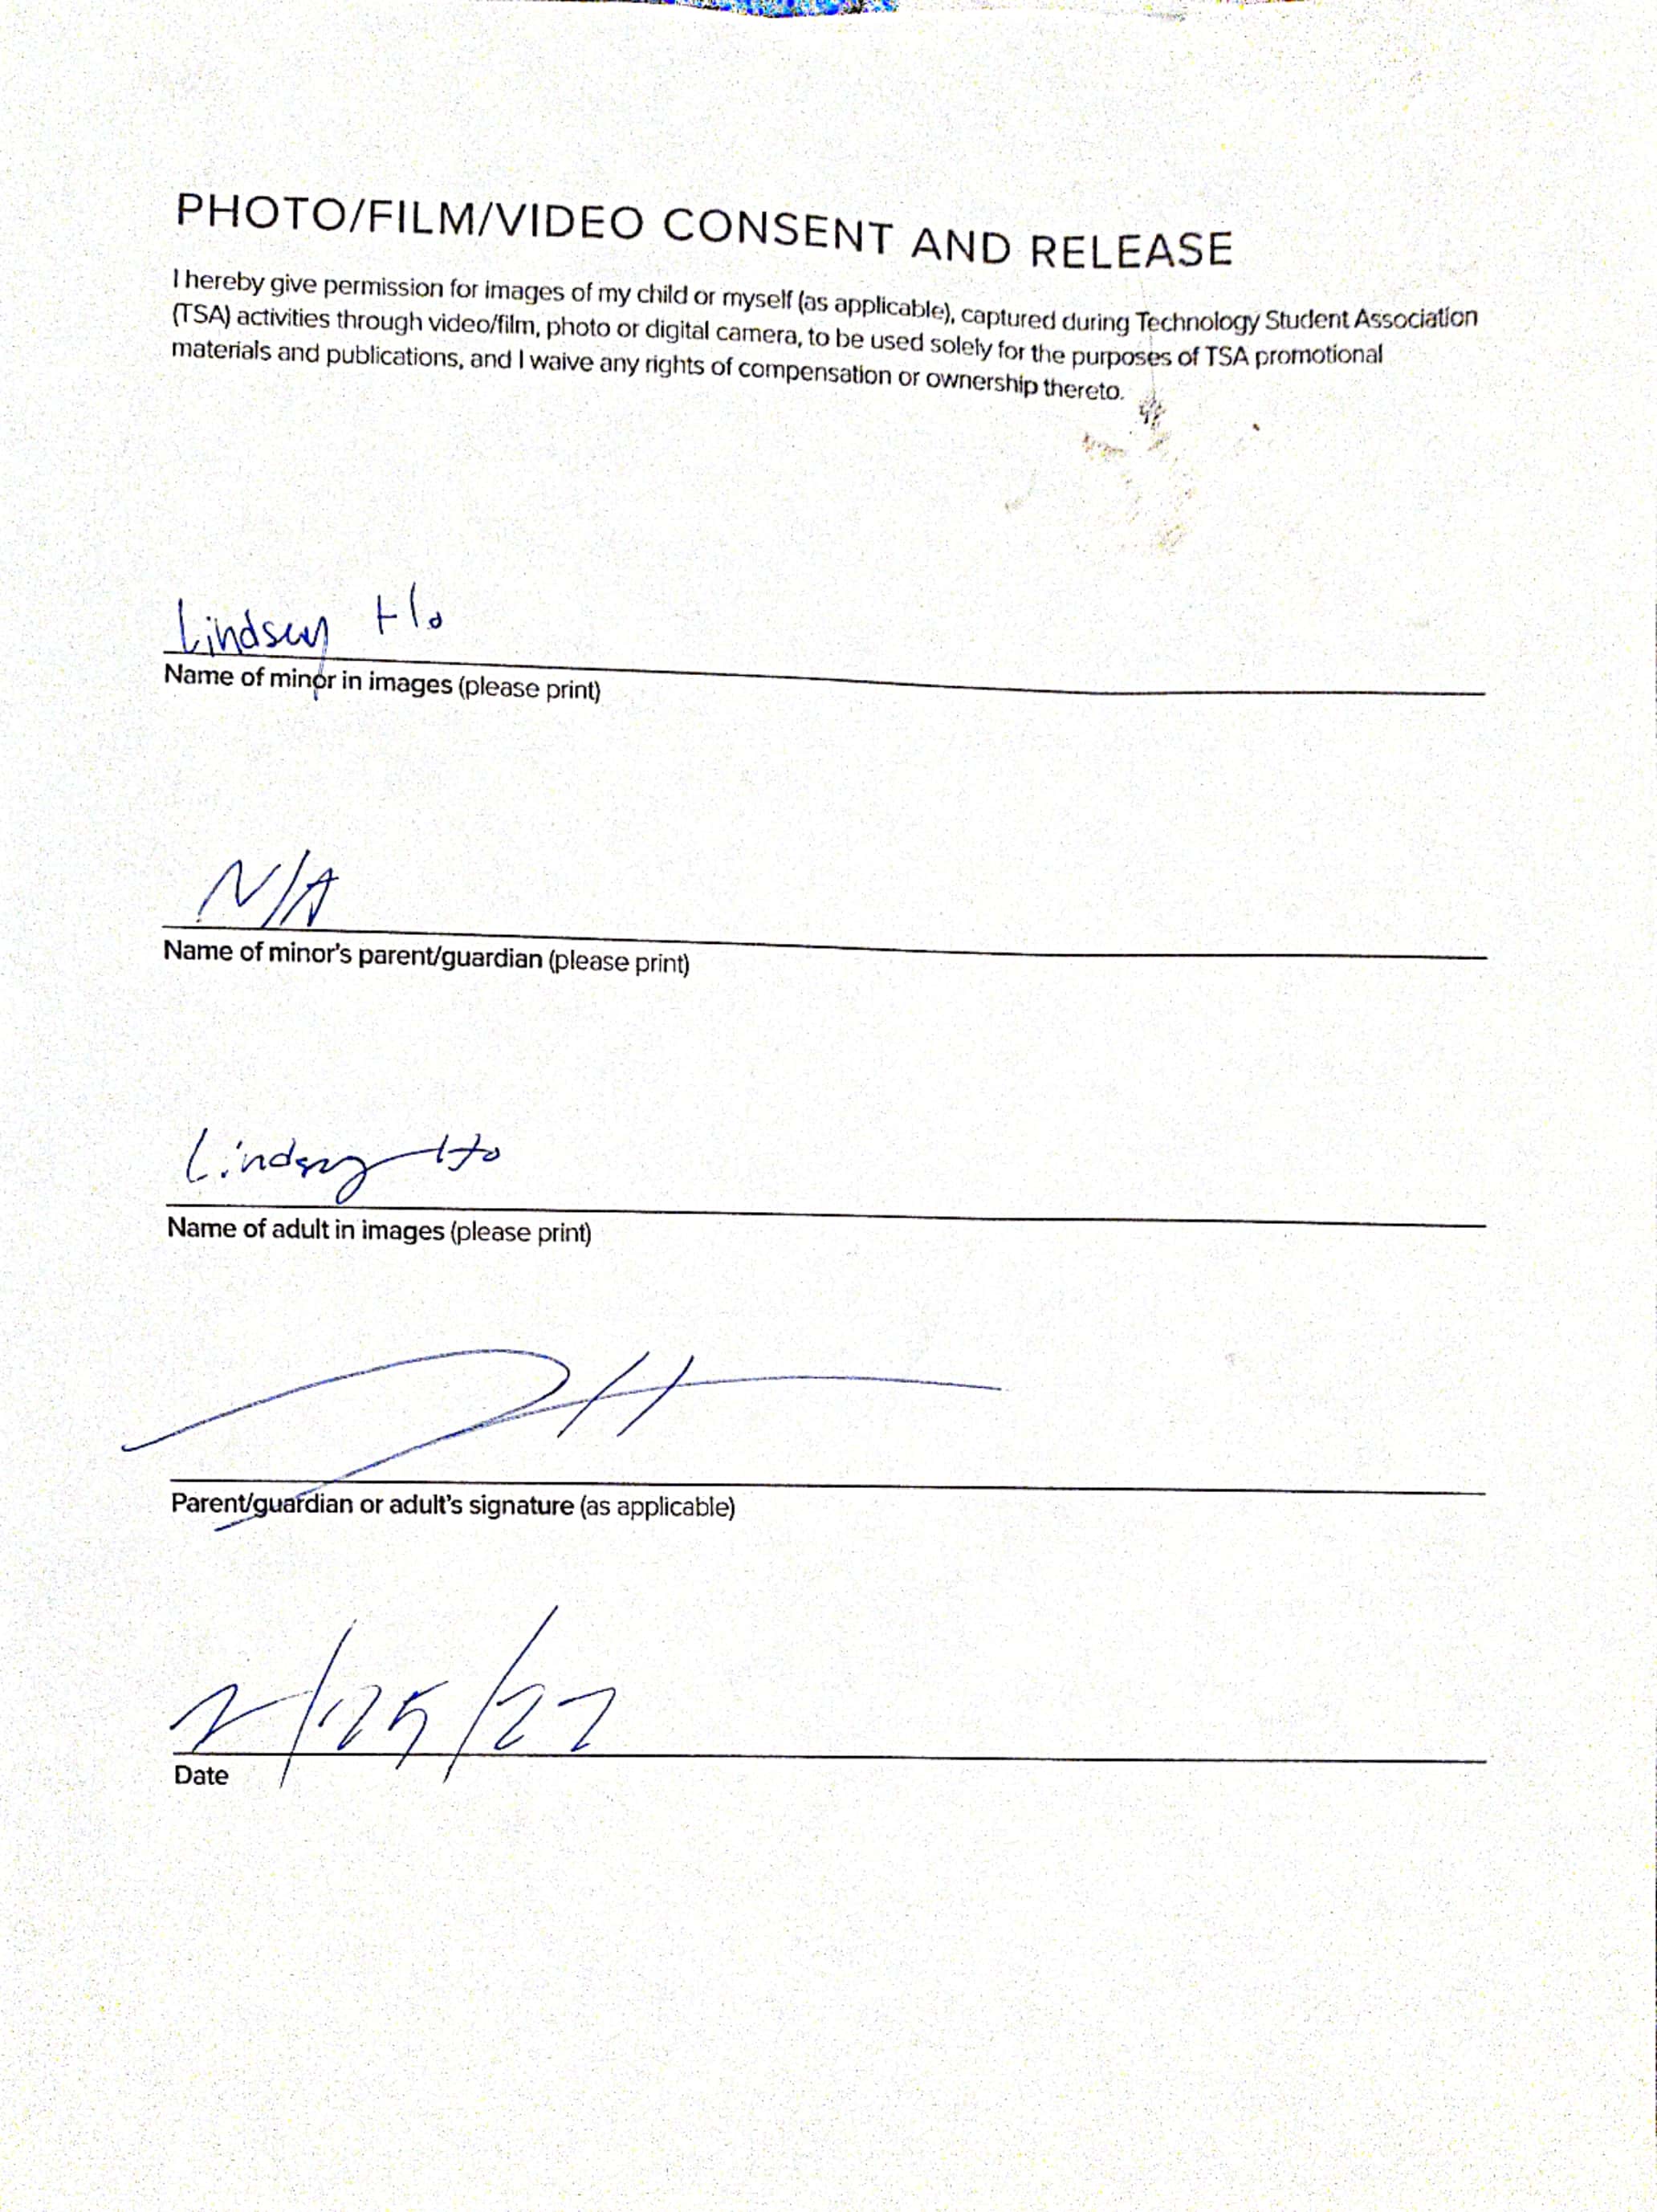 PHOTO/FILM/VIDEO CONSENT AND RELEASE
I hereby give permission for images of my child or myself (as applicable), captured during Technology Student Association
(TSA) activities through video/film, photo or digital camera, to be used solely for the purposes of TSA promotional
materials and publications, and I waive any rights of compensation or ownership thereto.
Lindsey Ho
Name of minor in images (please print)
N/A
Name of minor's parent/guardian (please print)
Lindsey Ho
Name of adult in images (please print)
Parent/guardian or adult's signature (as applicable)
2/25/22
Date